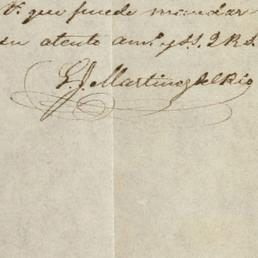 V. que puede mandar
su atento am. y S. S. Q B S.
G. J. Martinez del Rio